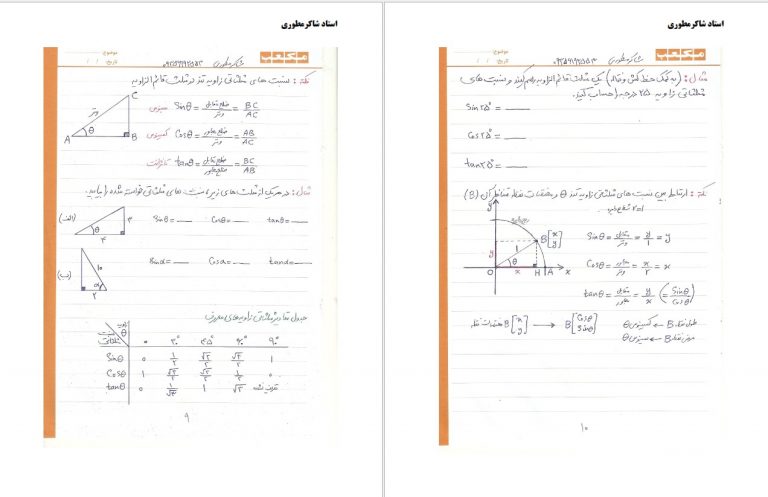 استاد شاکرمطوری
موضوع:
تاریخ: / /
شاکرمطوری
نکته: نسبت های مثلثاتی زاویه تند در مثلث قائم الزاویه
سینوس Sinθ = ضلع مقابل / وتر = BC/AC
کسینوس Cosθ = ضلع مجاور / وتر = AB/AC
تانژانت tanθ = ضلع مقابل / ضلع مجاور = BC/AB
A B C θ وتر
مثال: در هر یک از مثلث های زیر نسبت های مثلثاتی خواسته شده را بیابید.
(الف) θ ۳ ۴ Sinθ= Cosθ= tanθ=
(ب) ۱۰ α ۲ Sinα= Cosα= tanα=
جدول مقادیر مثلثاتی زاویه های معروف
θ ۰ ۳۰° ۴۵° ۶۰° ۹۰°
Sinθ ۰ ۱/۲ √۲/۲ √۳/۲ ۱
Cosθ ۱ √۳/۲ √۲/۲ ۱/۲ ۰
tanθ ۰ ۱/√۳ ۱ √۳ تعریف نشده
۹
استاد شاکرمطوری
موضوع:
تاریخ: / /
شاکرمطوری
مثال: (به کمک خط کش و نقاله) یک مثلث قائم الزاویه رسم کنید و نسبت های
مثلثاتی زاویه ۲۵ درجه را حساب کنید.
Sin ۲۵° =
Cos ۲۵° =
tan ۲۵° =
نکته: ارتباط بین نسبت های مثلثاتی زاویه تند θ و مختصات نقطه متناظر آن (B)
y B [x y] 1 y θ O x H A x
Sinθ = مقابل / وتر = y/1 = y
Cosθ = مجاور / وتر = x/r = x
tanθ = مقابل / مجاور = y/x (= Sinθ/Cosθ)
مختصات نقطه B [x y] → B [Cosθ Sinθ]
طول نقطه B ← کسینوس θ
عرض نقطه B ← سینوس θ
۱۰